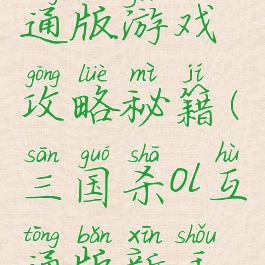 通版游戏
gōng lüè mì jí
攻略秘籍(
sān guó shā hù
三国杀OL互
tōng bǎn xīn shǒu